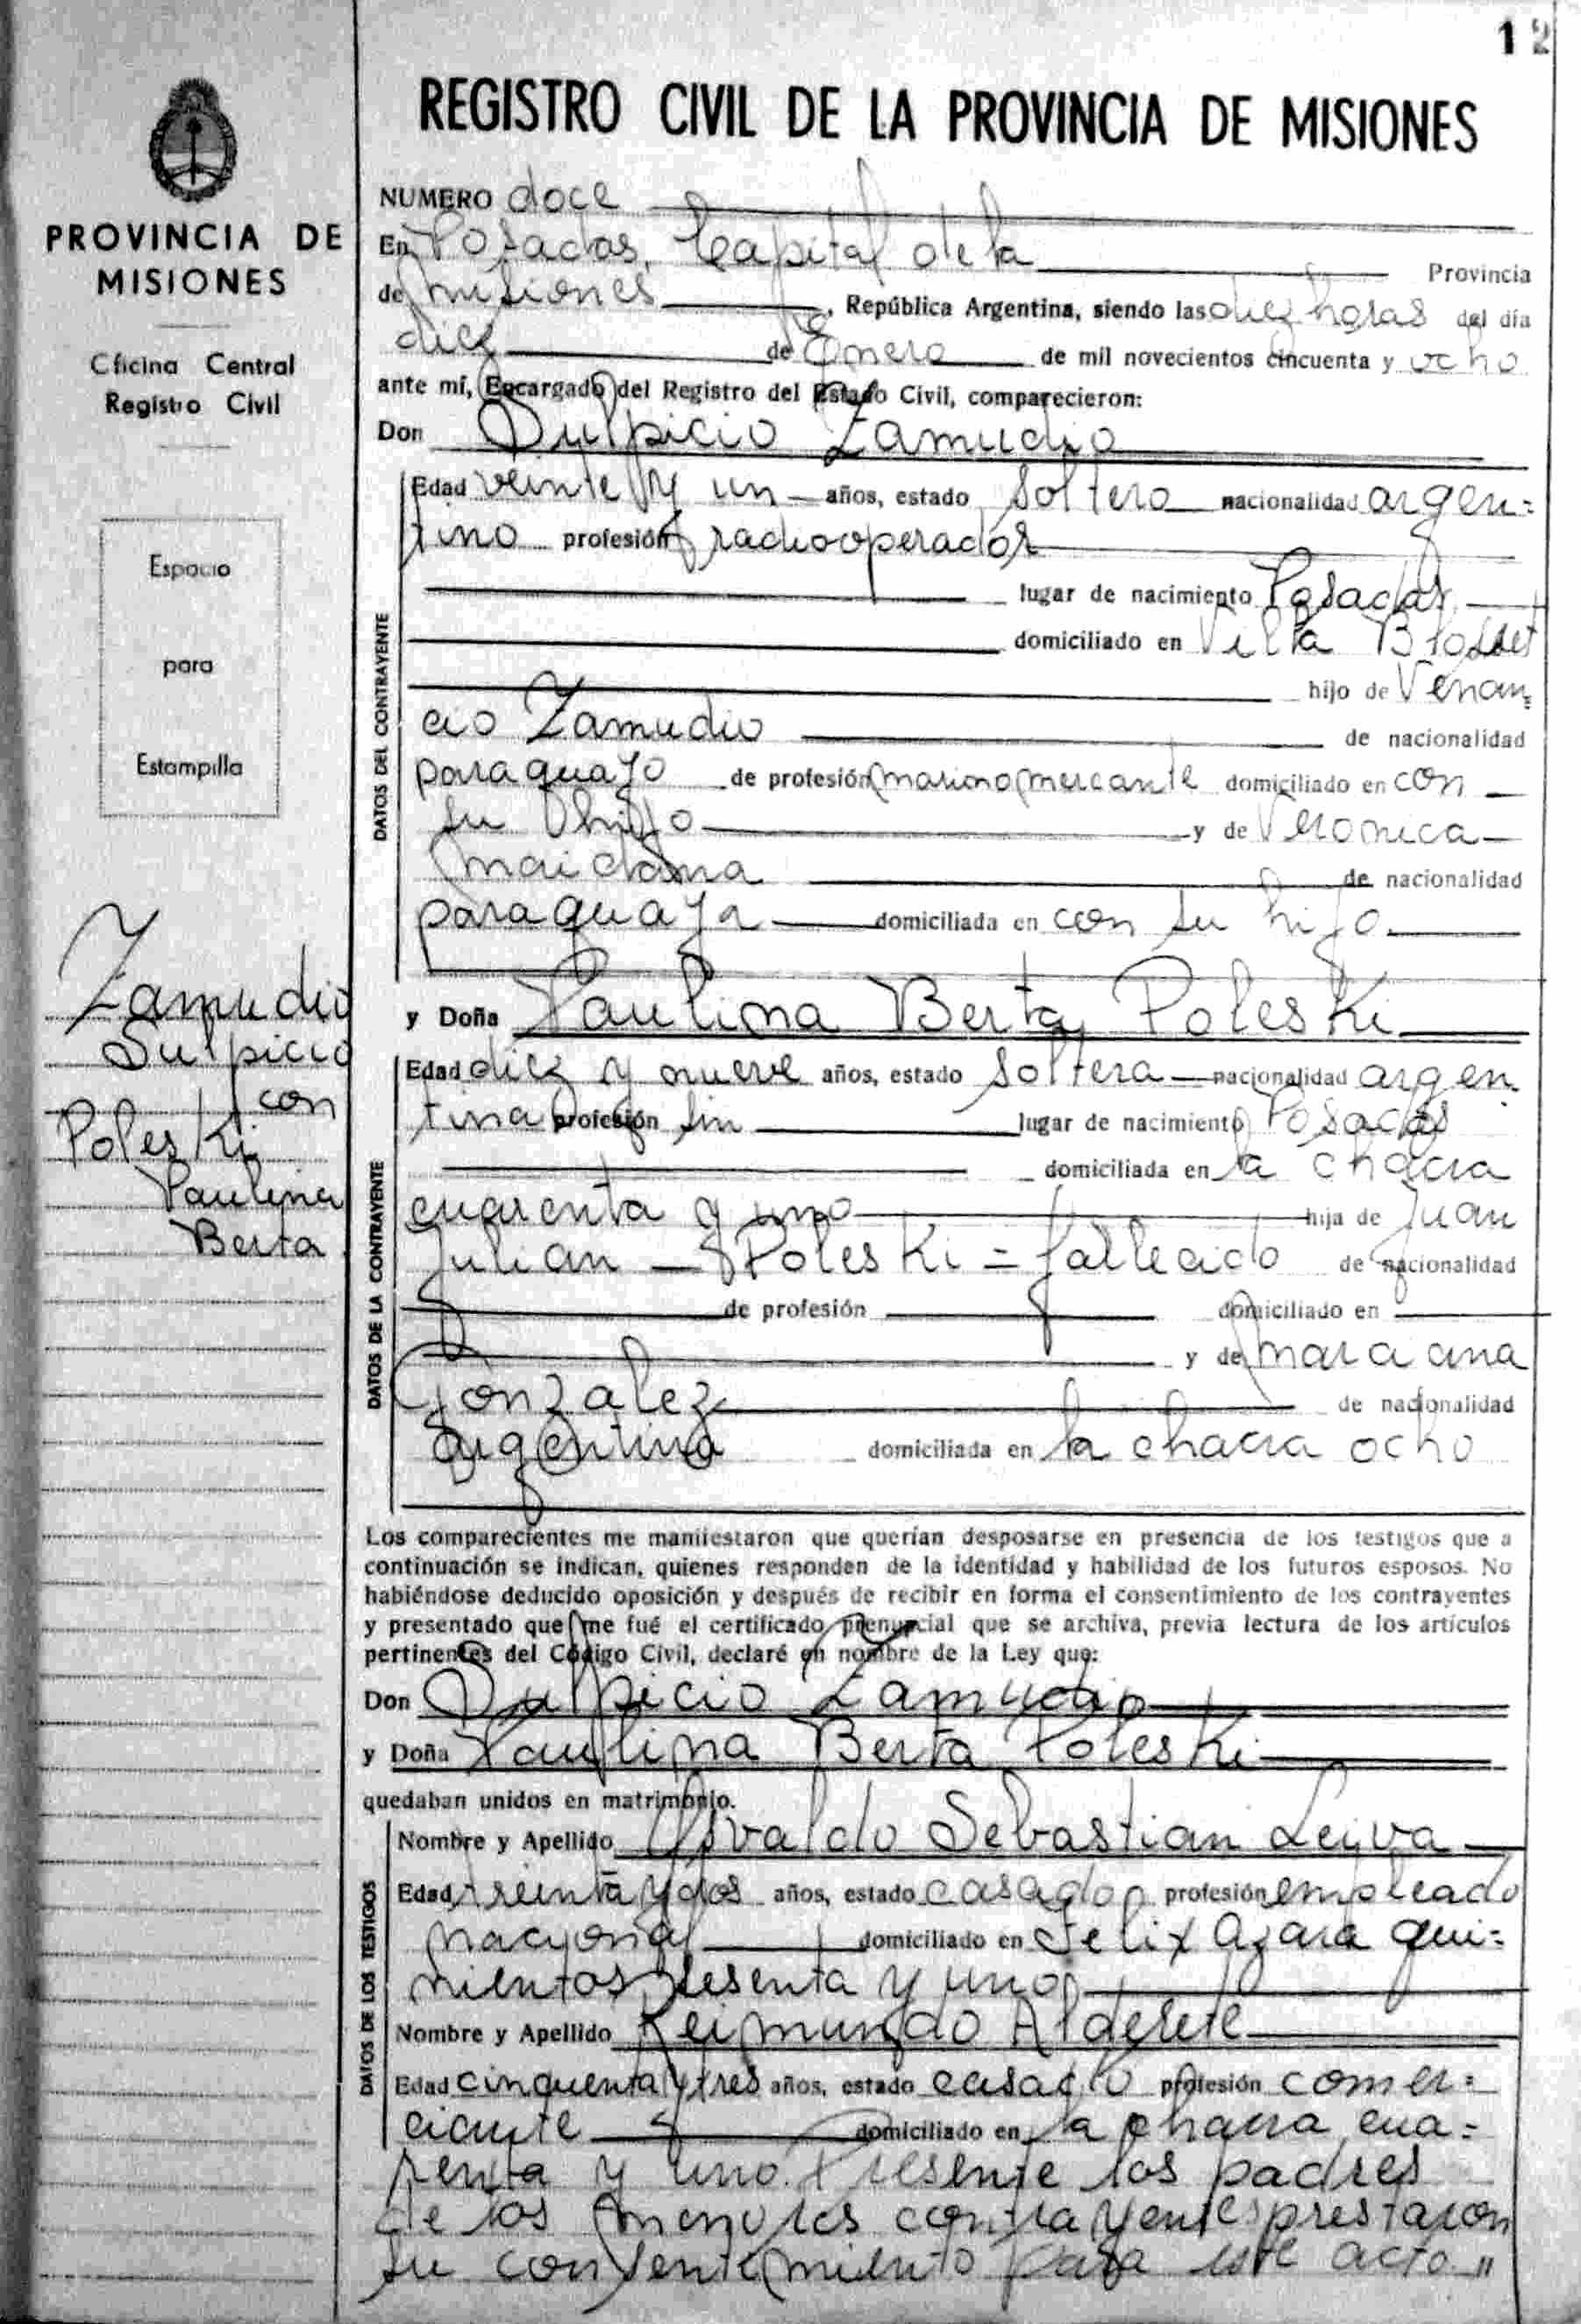 12
REGISTRO CIVIL DE LA PROVINCIA DE MISIONES
PROVINCIA DE
MISIONES
Oficina Central
Registro Civil
Espacio
para
Estampilla
Zamudio
Sulpicio
con
Poleski
Paulina
Berta
NUMERO doce
En Posadas, Capital de la Provincia
de misiones, República Argentina, siendo las diez horas del día
diez de Enero de mil novecientos cincuenta y ocho
ante mí, Encargado del Registro del Estado Civil, comparecieron:
Don Sulpicio Zamudio
DATOS DEL CONTRAYENTE
Edad veinte y un años, estado soltero nacionalidad argen=
tino profesión radiooperador
lugar de nacimiento Posadas
domiciliado en Villa Blosset
hijo de Venan=
cio Zamudio de nacionalidad
paraguayo de profesión marino mercante domiciliado en con
su hijo y de Veronica
maidana de nacionalidad
paraguaya domiciliada en con su hijo
y Doña Paulina Berta Poleski
DATOS DE LA CONTRAYENTE
Edad diez y nueve años, estado soltera nacionalidad argen
tina profesión sin lugar de nacimiento Posadas
domiciliada en la chacra
cuarenta y uno hija de Juan
Julian Poleski = fallecido de nacionalidad
de profesión domiciliado en
y de mara ana
Gonzalez de nacionalidad
argentina domiciliada en la chacra ocho
Los comparecientes me manifestaron que querían desposarse en presencia de los testigos que a
continuación se indican, quienes responden de la identidad y habilidad de los futuros esposos. No
habiéndose deducido oposición y después de recibir en forma el consentimiento de los contrayentes
y presentado que me fué el certificado prenupcial que se archiva, previa lectura de los artículos
pertinentes del Código Civil, declaré en nombre de la Ley que:
Don Sulpicio Zamudio
y Doña Paulina Berta Poleski
quedaban unidos en matrimonio.
DATOS DE LOS TESTIGOS
Nombre y Apellido Osvaldo Sebastian Leiva
Edad treinta y dos años, estado casado profesión empleado
nacional domiciliado en Felix Azara qui=
nientos sesenta y uno
Nombre y Apellido Reimundo Alderete
Edad cinquenta y tres años, estado casado profesión comer=
ciante domiciliado en la chacra cua=
renta y uno. Presente los padres
de los menores contrayentes prestaron
su consentimiento para este acto "